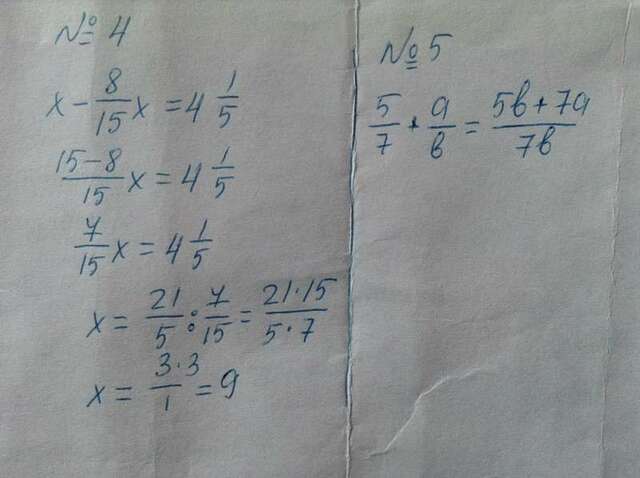 № 4
x - 8/15 x = 4 1/5
15-8/15 x = 4 1/5
7/15 x = 4 1/5
x = 21/5 : 7/15 = 21·15/5·7
x = 3·3/1 = 9
№ 5
5/7 + a/b = 5b+7a/7b